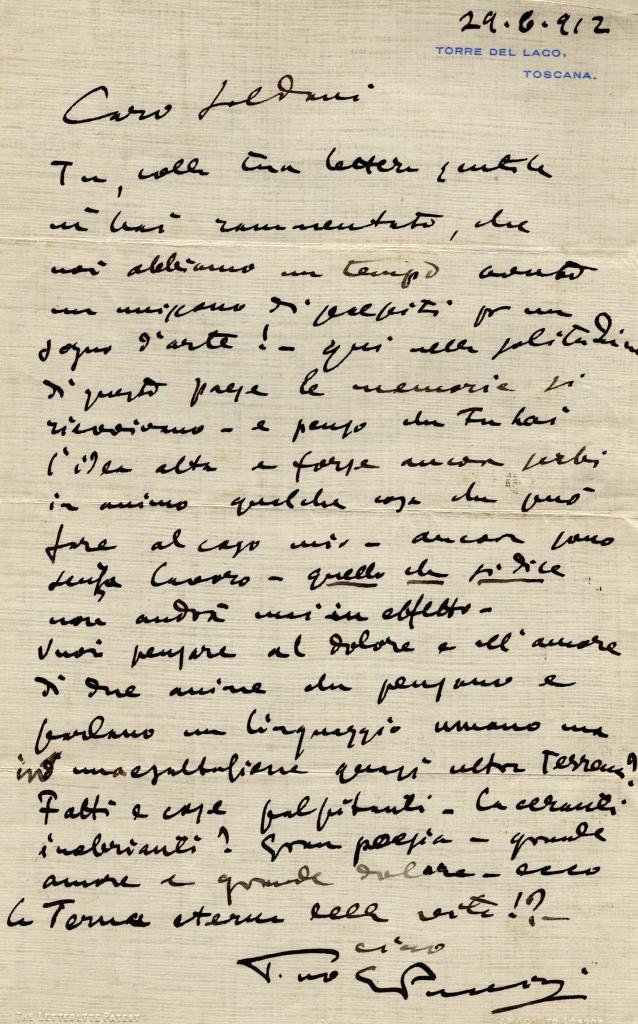 29.6.912
TORRE DEL LAGO,
TOSCANA.
Caro Soldani
Tu, colla tua lettera gentile
m'hai rammentato, che
noi abbiamo un tempo avuto
un unissono di palpiti pr un
sogno d'arte! - qui nella solitudine
di questo paese le memorie si
ravvivano - e penso che Tu hai
l'idea alta e forse ancora serbi
in animo qualche cosa che può
fare al caso mio - ancora sono
senza lavoro - quello che si dice
non andrà mai in effetto -
Vuoi pensare al dolore e all'amore
di due anime che pensano e
parlano un linguaggio umano ma
in una esaltazione quasi ultra Terrena?
Fatti e cose palpitanti - laceranti
inebrianti? Gran poesia - grande
amore e grande dolore - ecco
la Terna eterna della vita!? -
ciao
Tuo GPuccini
THE LETTERETTE PATENT